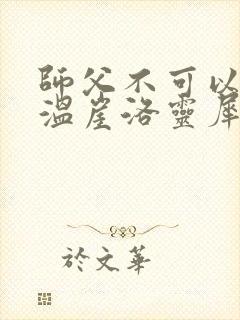 師父不可以
溫崖洛靈犀
於文華